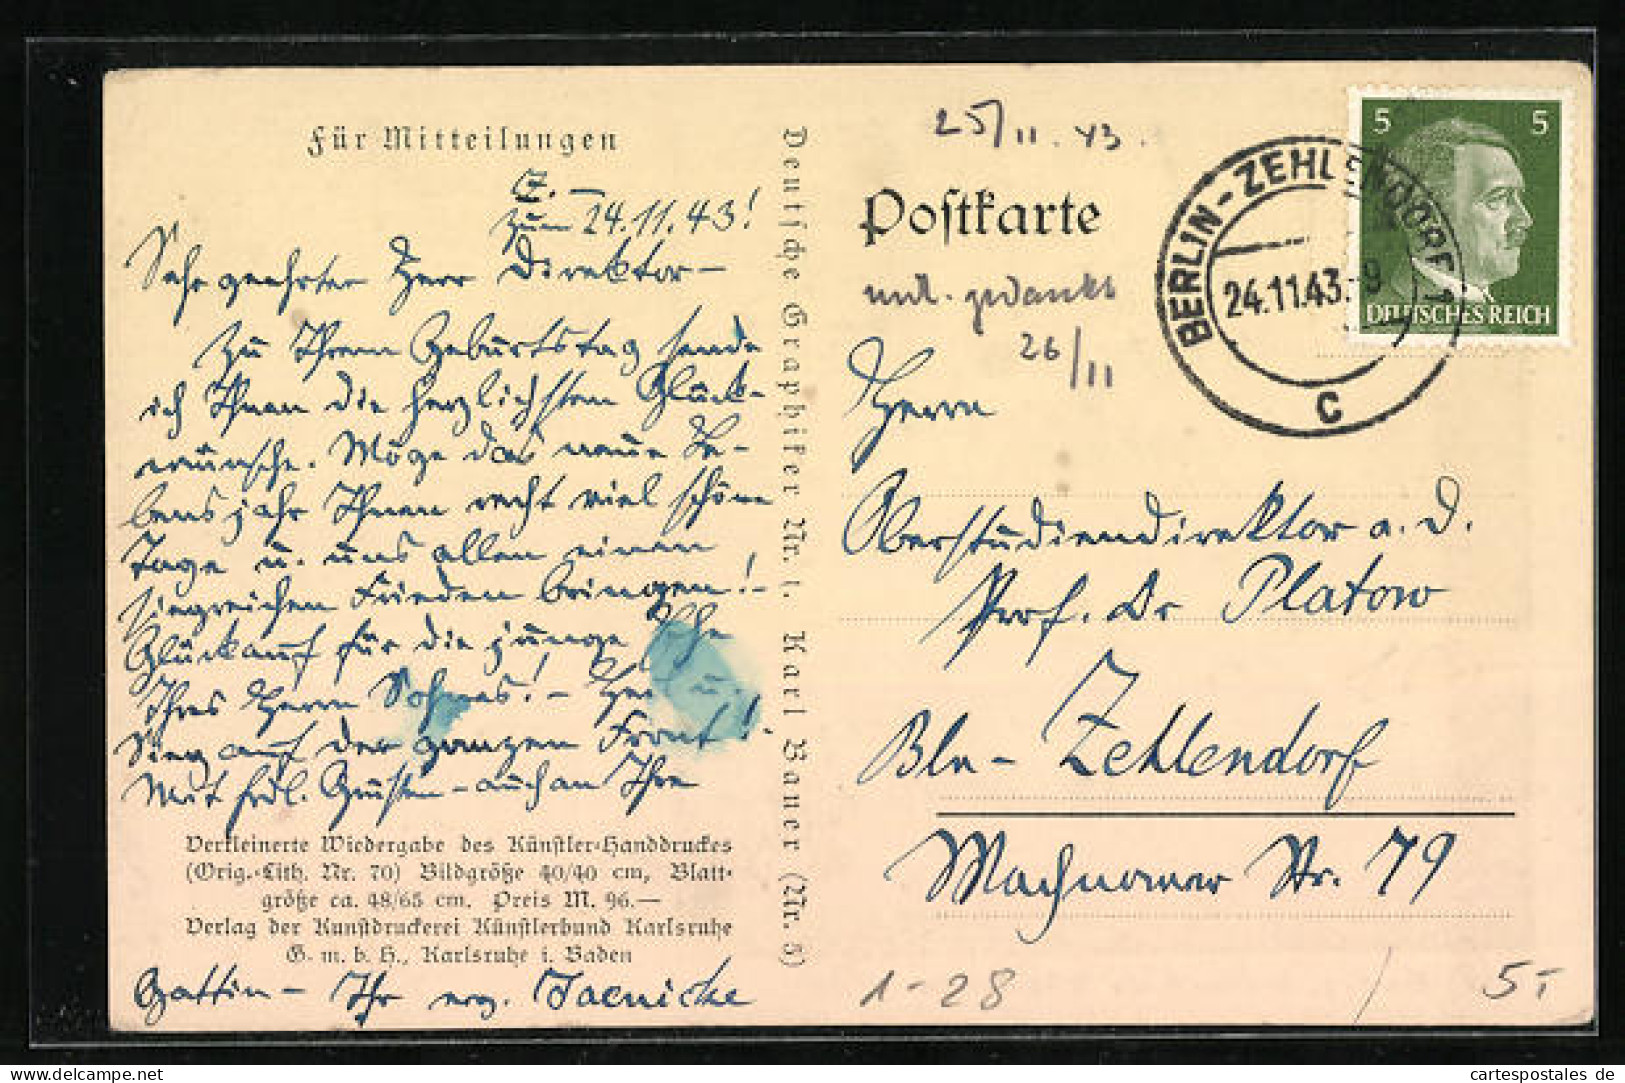 Für Mitteilungen
Z. –
zum 24.11.43!
Sehr geehrter Herr Direktor –
Zu Ihrem Geburtstag sende
ich Ihnen die herzlichsten Glück-
wünsche. Möge das neue Le-
bensjahr Ihnen recht viel schöne
Tage u. uns allen einen
siegreichen Frieden bringen! –
Glückauf für die junge Ehe
Ihres Herrn Sohnes! – Heil u.
Sieg auf der ganzen Front!
Mit frdl. Grüßen – auch an Ihre
Verkleinerte Wiedergabe des Künstler-Handdruckes
(Orig.-Lith. Nr. 70) Bildgröße 40/40 cm, Blatt-
größe ca. 48/65 cm. Preis M. 96.—
Verlag der Kunstdruckerei Künstlerbund Karlsruhe
G. m. b. H., Karlsruhe i. Baden
Gattin – Ihr erg. Jaenicke
Deutsche Graphiker Nr. 1. Karl Bauer (Nr. 5)
25/11. 43.
Postkarte
mdl. gedankt
26/11
BERLIN-ZEHLENDORF 1
24.11.43.-9
C
5 5
DEUTSCHES REICH
Herrn
Oberstudiendirektor a. D.
Prof. Dr Platow
Bln – Zehlendorf
Machnower Str. 79
1-28
5,-
cartespostales de